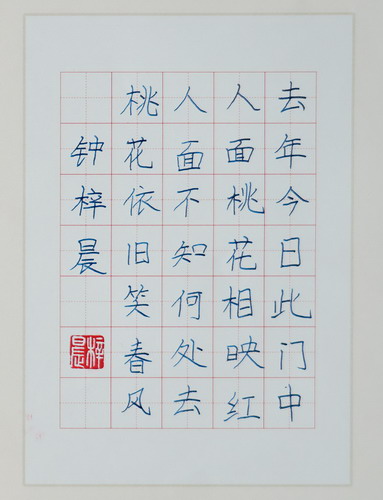 去年今日此门中
人面桃花相映红
人面不知何处去
桃花依旧笑春风
钟梓晨
梓晨